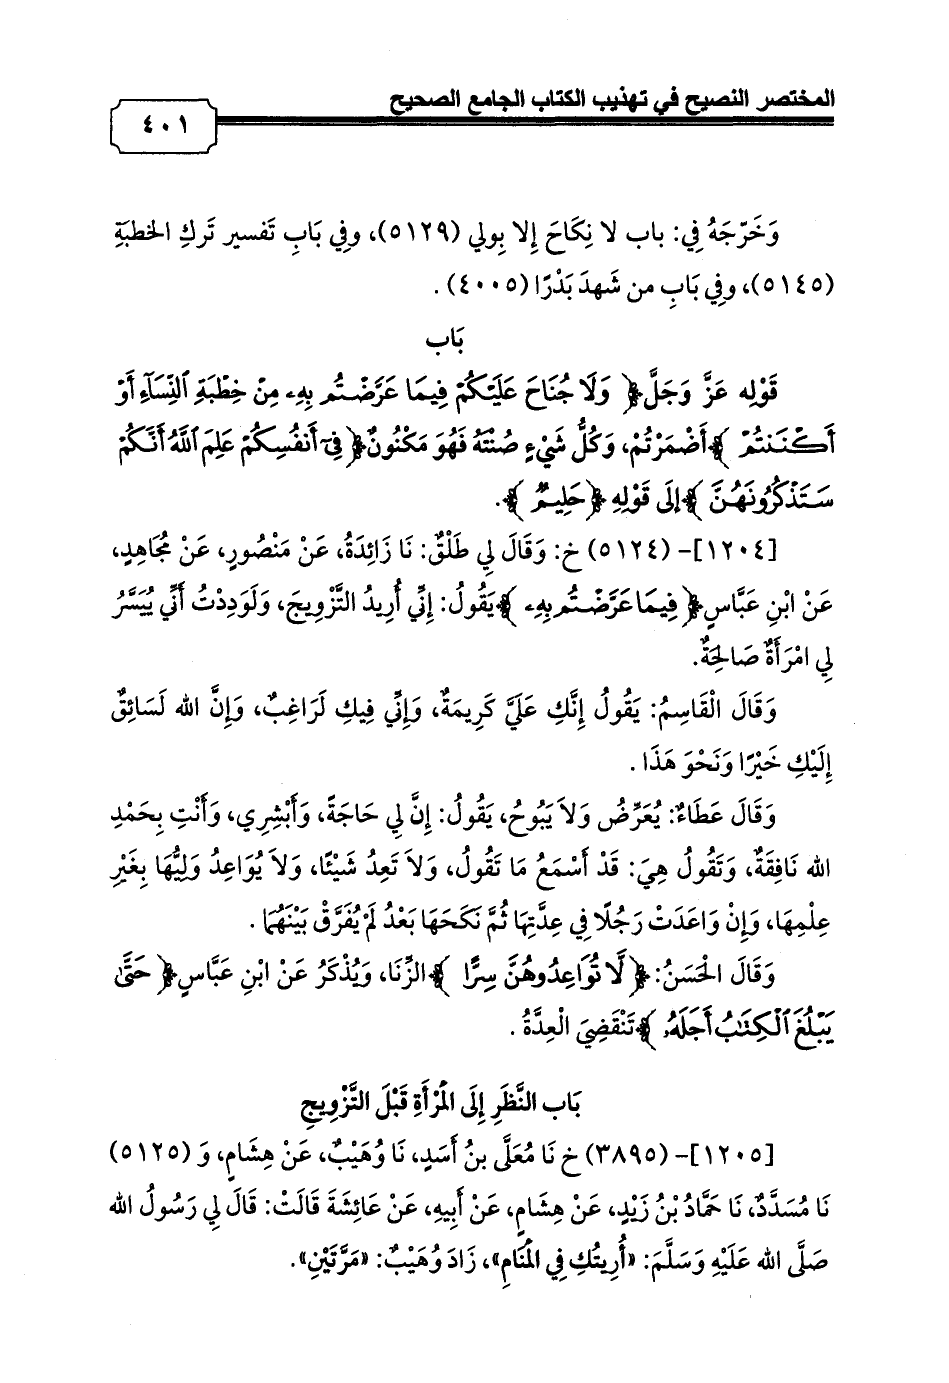 المختصر النصيح في تهذيب الكتاب الجامع الصحيح
٤٠١
وَخَرّجَهُ فِي: باب لا نِكَاحَ إِلا بِولي (٥١٢٩)، وفِي بَابِ تَفسير تَركِ الخطبَةِ
(٥١٤٥)، وفِي بَابِ من شَهدَ بَدْرًا (٤٠٠٥) .
بَاب
قَوْلِه عَزَّ وَجَلَّ ﴿ وَلَا جُنَاحَ عَلَيْكُمْ فِيمَا عَرَّضْتُم بِهِۦ مِنْ خِطْبَةِ ٱلنِّسَآءِ أَوْ
أَكْنَنتُمْ ﴾ أَضْمَرْتُمْ، وَكُلُّ شَيْءٍ صُنْتَهُ فَهُوَ مَكْنُونٌ ﴿ فِيٓ أَنفُسِكُمْ عَلِمَ ٱللَّهُ أَنَّكُمْ
سَتَذْكُرُونَهُنَّ ﴾ إِلَى قَوْلِهِ ﴿ حَلِيمٌ ﴾.
[١٢٠٤]- (٥١٢٤) خ: وَقَالَ لِي طَلْقٌ: نَا زَائِدَةُ، عَنْ مَنْصُورٍ، عَنْ مُجَاهِدٍ،
عَنْ ابْنِ عَبَّاسٍ ﴿ فِيمَا عَرَّضْتُم بِهِۦ ﴾ يَقُولُ: إِنِّي أُرِيدُ التَّزْوِيجَ، وَلَوَدِدْتُ أَنِّي يُيَسَّرُ
لِي امْرَأَةٌ صَالِحَةٌ.
وَقَالَ الْقَاسِمُ: يَقُولُ إِنَّكِ عَلَيَّ كَرِيمَةٌ، وَإِنِّي فِيكِ لَرَاغِبٌ، وَإِنَّ الله لَسَائِقٌ
إِلَيْكِ خَيْرًا وَنَحْوَ هَذَا .
وَقَالَ عَطَاءٌ: يُعَرِّضُ وَلاَ يَبُوحُ، يَقُولُ: إِنَّ لِي حَاجَةً، وَأَبْشِرِي، وَأَنْتِ بِحَمْدِ
الله نَافِقَةٌ، وَتَقُولُ هِيَ: قَدْ أَسْمَعُ مَا تَقُولُ، وَلاَ تَعِدُ شَيْئًا، وَلاَ يُوَاعِدُ وَلِيُّهَا بِغَيْرِ
عِلْمِهَا، وَإِنْ وَاعَدَتْ رَجُلًا فِي عِدَّتِهَا ثُمَّ نَكَحَهَا بَعْدُ لَمْ يُفَرَّقْ بَيْنَهُمَا .
وَقَالَ الْحَسَنُ: ﴿ لَّا تُوَاعِدُوهُنَّ سِرًّا ﴾ الزِّنَا، وَيُذْكَرُ عَنْ ابْنِ عَبَّاسٍ ﴿ حَتَّىٰ
يَبْلُغَ ٱلْكِتَٰبُ أَجَلَهُۥ ﴾ تَنْقَضِيَ الْعِدَّةُ .
بَاب النَّظَرِ إِلَى الْمَرْأَةِ قَبْلَ التَّزْوِيجِ
[١٢٠٥]- (٣٨٩٥) خ نَا مُعَلَّى بنُ أَسَدٍ، نَا وُهَيْبٌ، عَنْ هِشَامٍ، وَ (٥١٢٥)
نَا مُسَدَّدٌ، نَا حَمَّادُ بْنُ زَيْدٍ، عَنْ هِشَامٍ، عَنْ أَبِيهِ، عَنْ عَائِشَةَ قَالَتْ: قَالَ لِي رَسُولُ الله
صَلَّى الله عَلَيْهِ وَسَلَّمَ: «أُرِيتُكِ فِي الْمَنَامِ»، زَادَ وُهَيْبٌ: «مَرَّتَيْنِ».